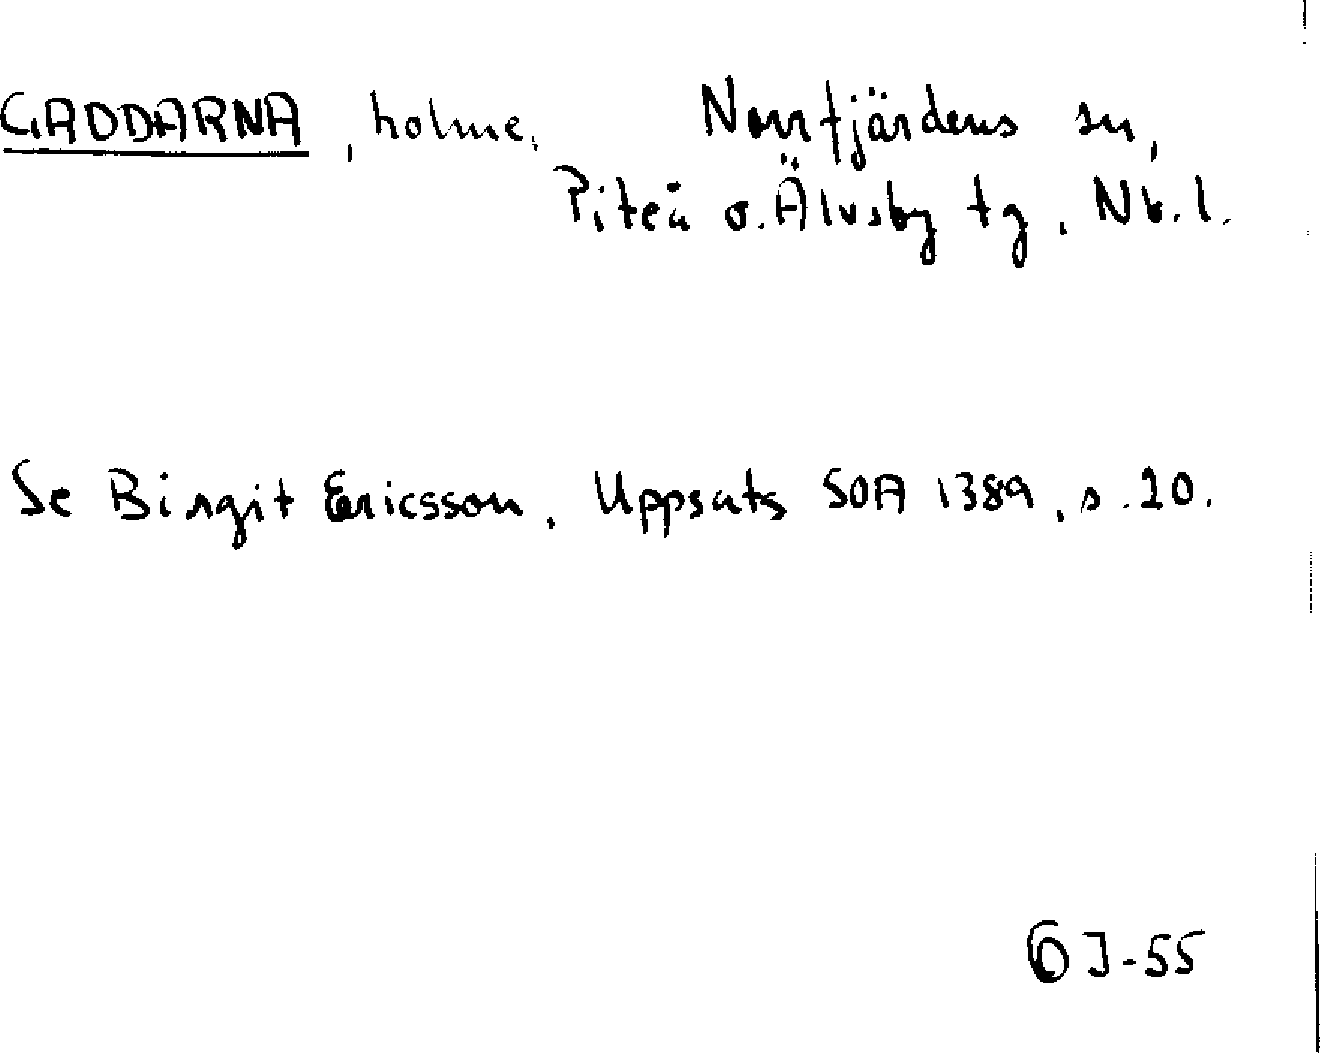 GADDARNA, holme. Norrfjärdens sn,
Piteå o. Älvsby tg, Nb. l.
Se Birgit Ericsson, Uppsats SOA 1389, s. 20.
ÖJ-55